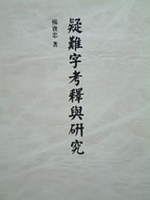 疑難字考釋與研究
楊寶忠 著